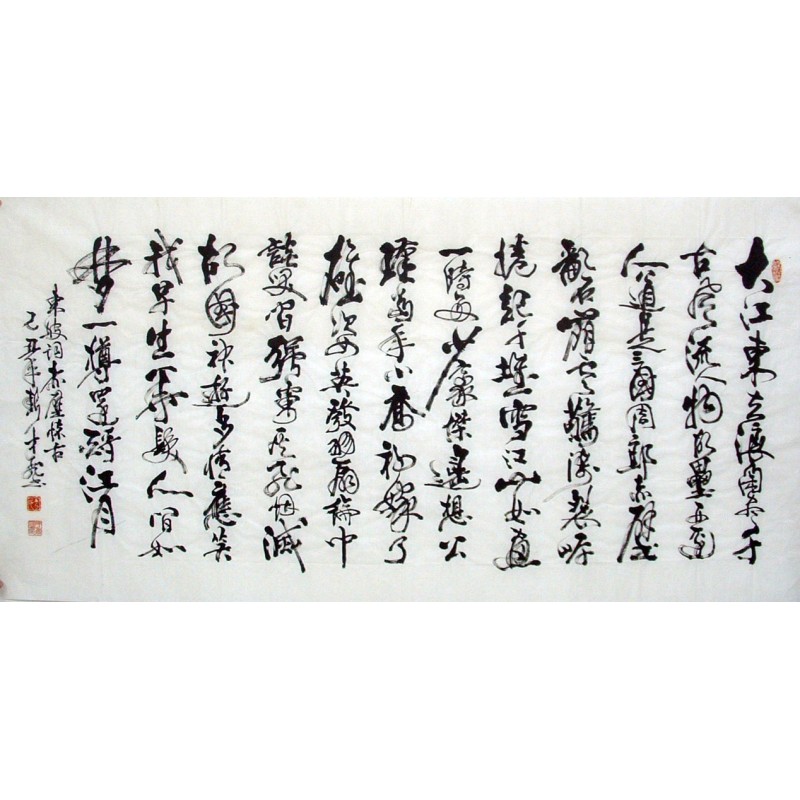 大江東去浪淘盡千
古風流人物故壘西邊
人道是三國周郎赤壁
亂石崩雲驚濤裂岸
捲起千堆雪江山如畫
一時多少豪傑遙想公
瑾當年小喬初嫁了
雄姿英發羽扇綸中
談笑間強虜灰飛煙滅
故國神遊多情應笑
我早生華髮人間如
夢一樽還酹江月
東坡詞赤壁懷古
己丑年